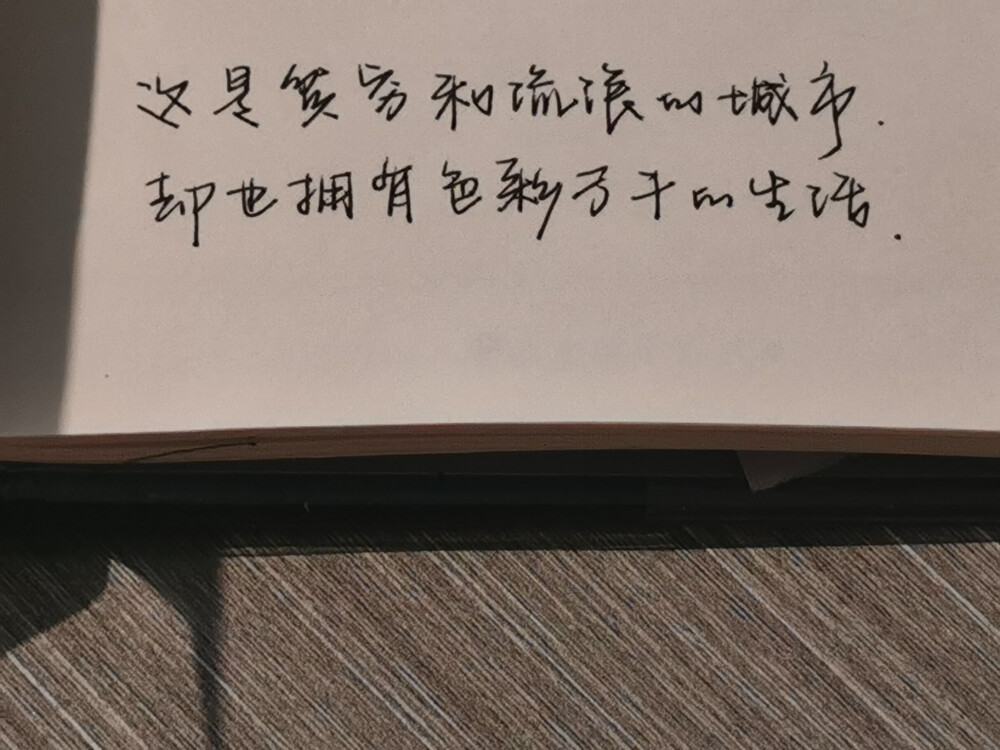 这是贫穷和流浪的城市.
却也拥有色彩万千的生活.